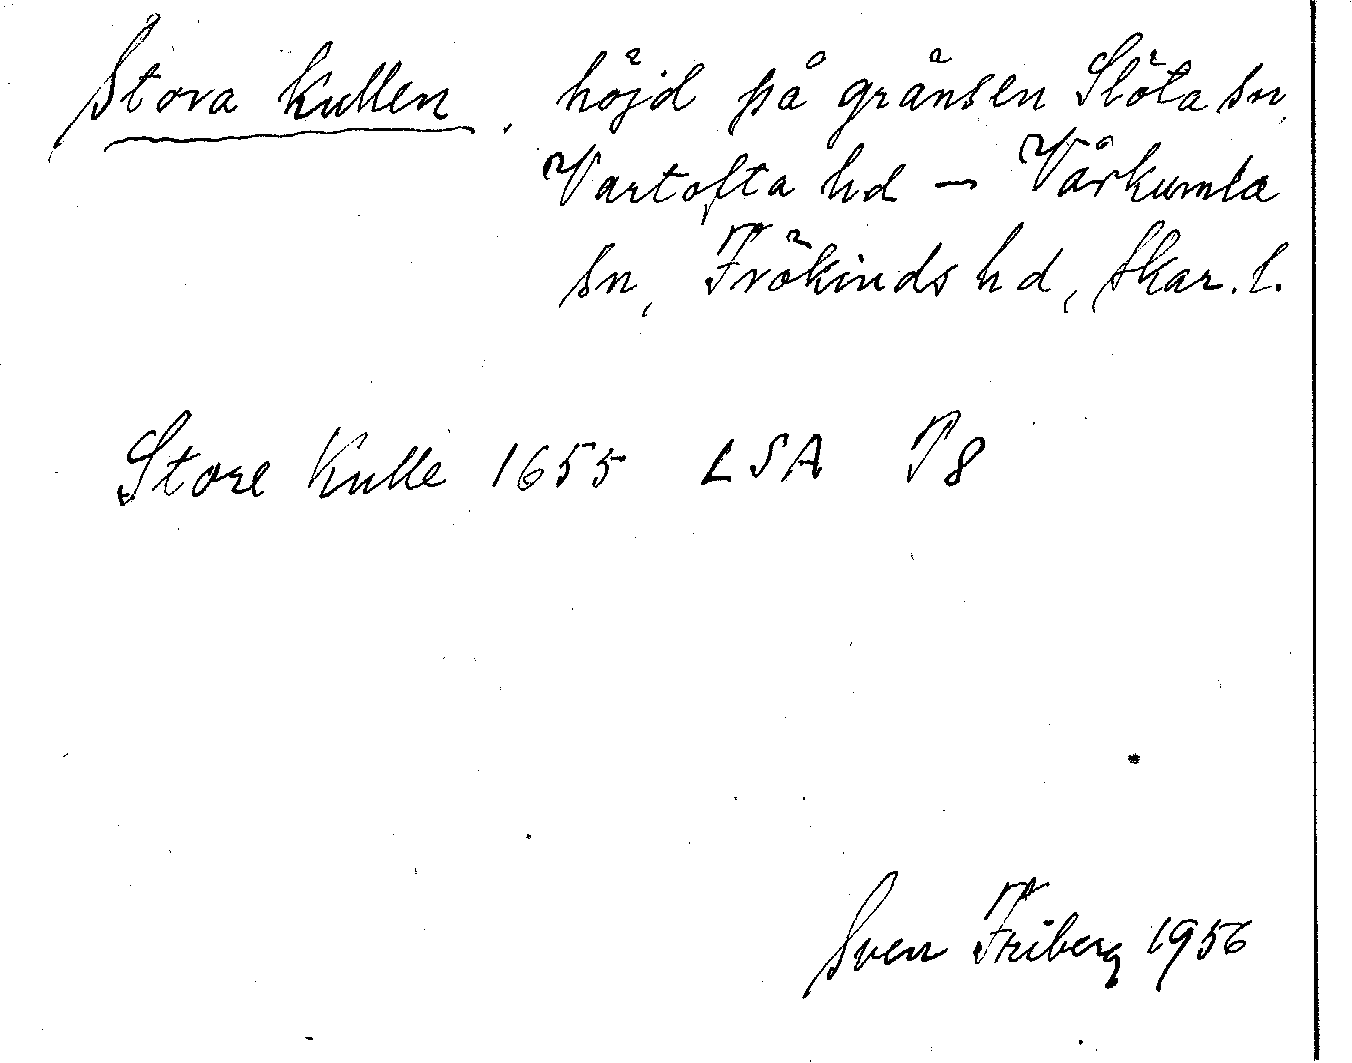 Stora Kullen, höjd på gränsen Slöta sn,
Vartofta hd – Vårkumla
sn, Frökinds hd, Skar. l.
Store Kulle 1655 LSA P8
Sven Friberg 1956